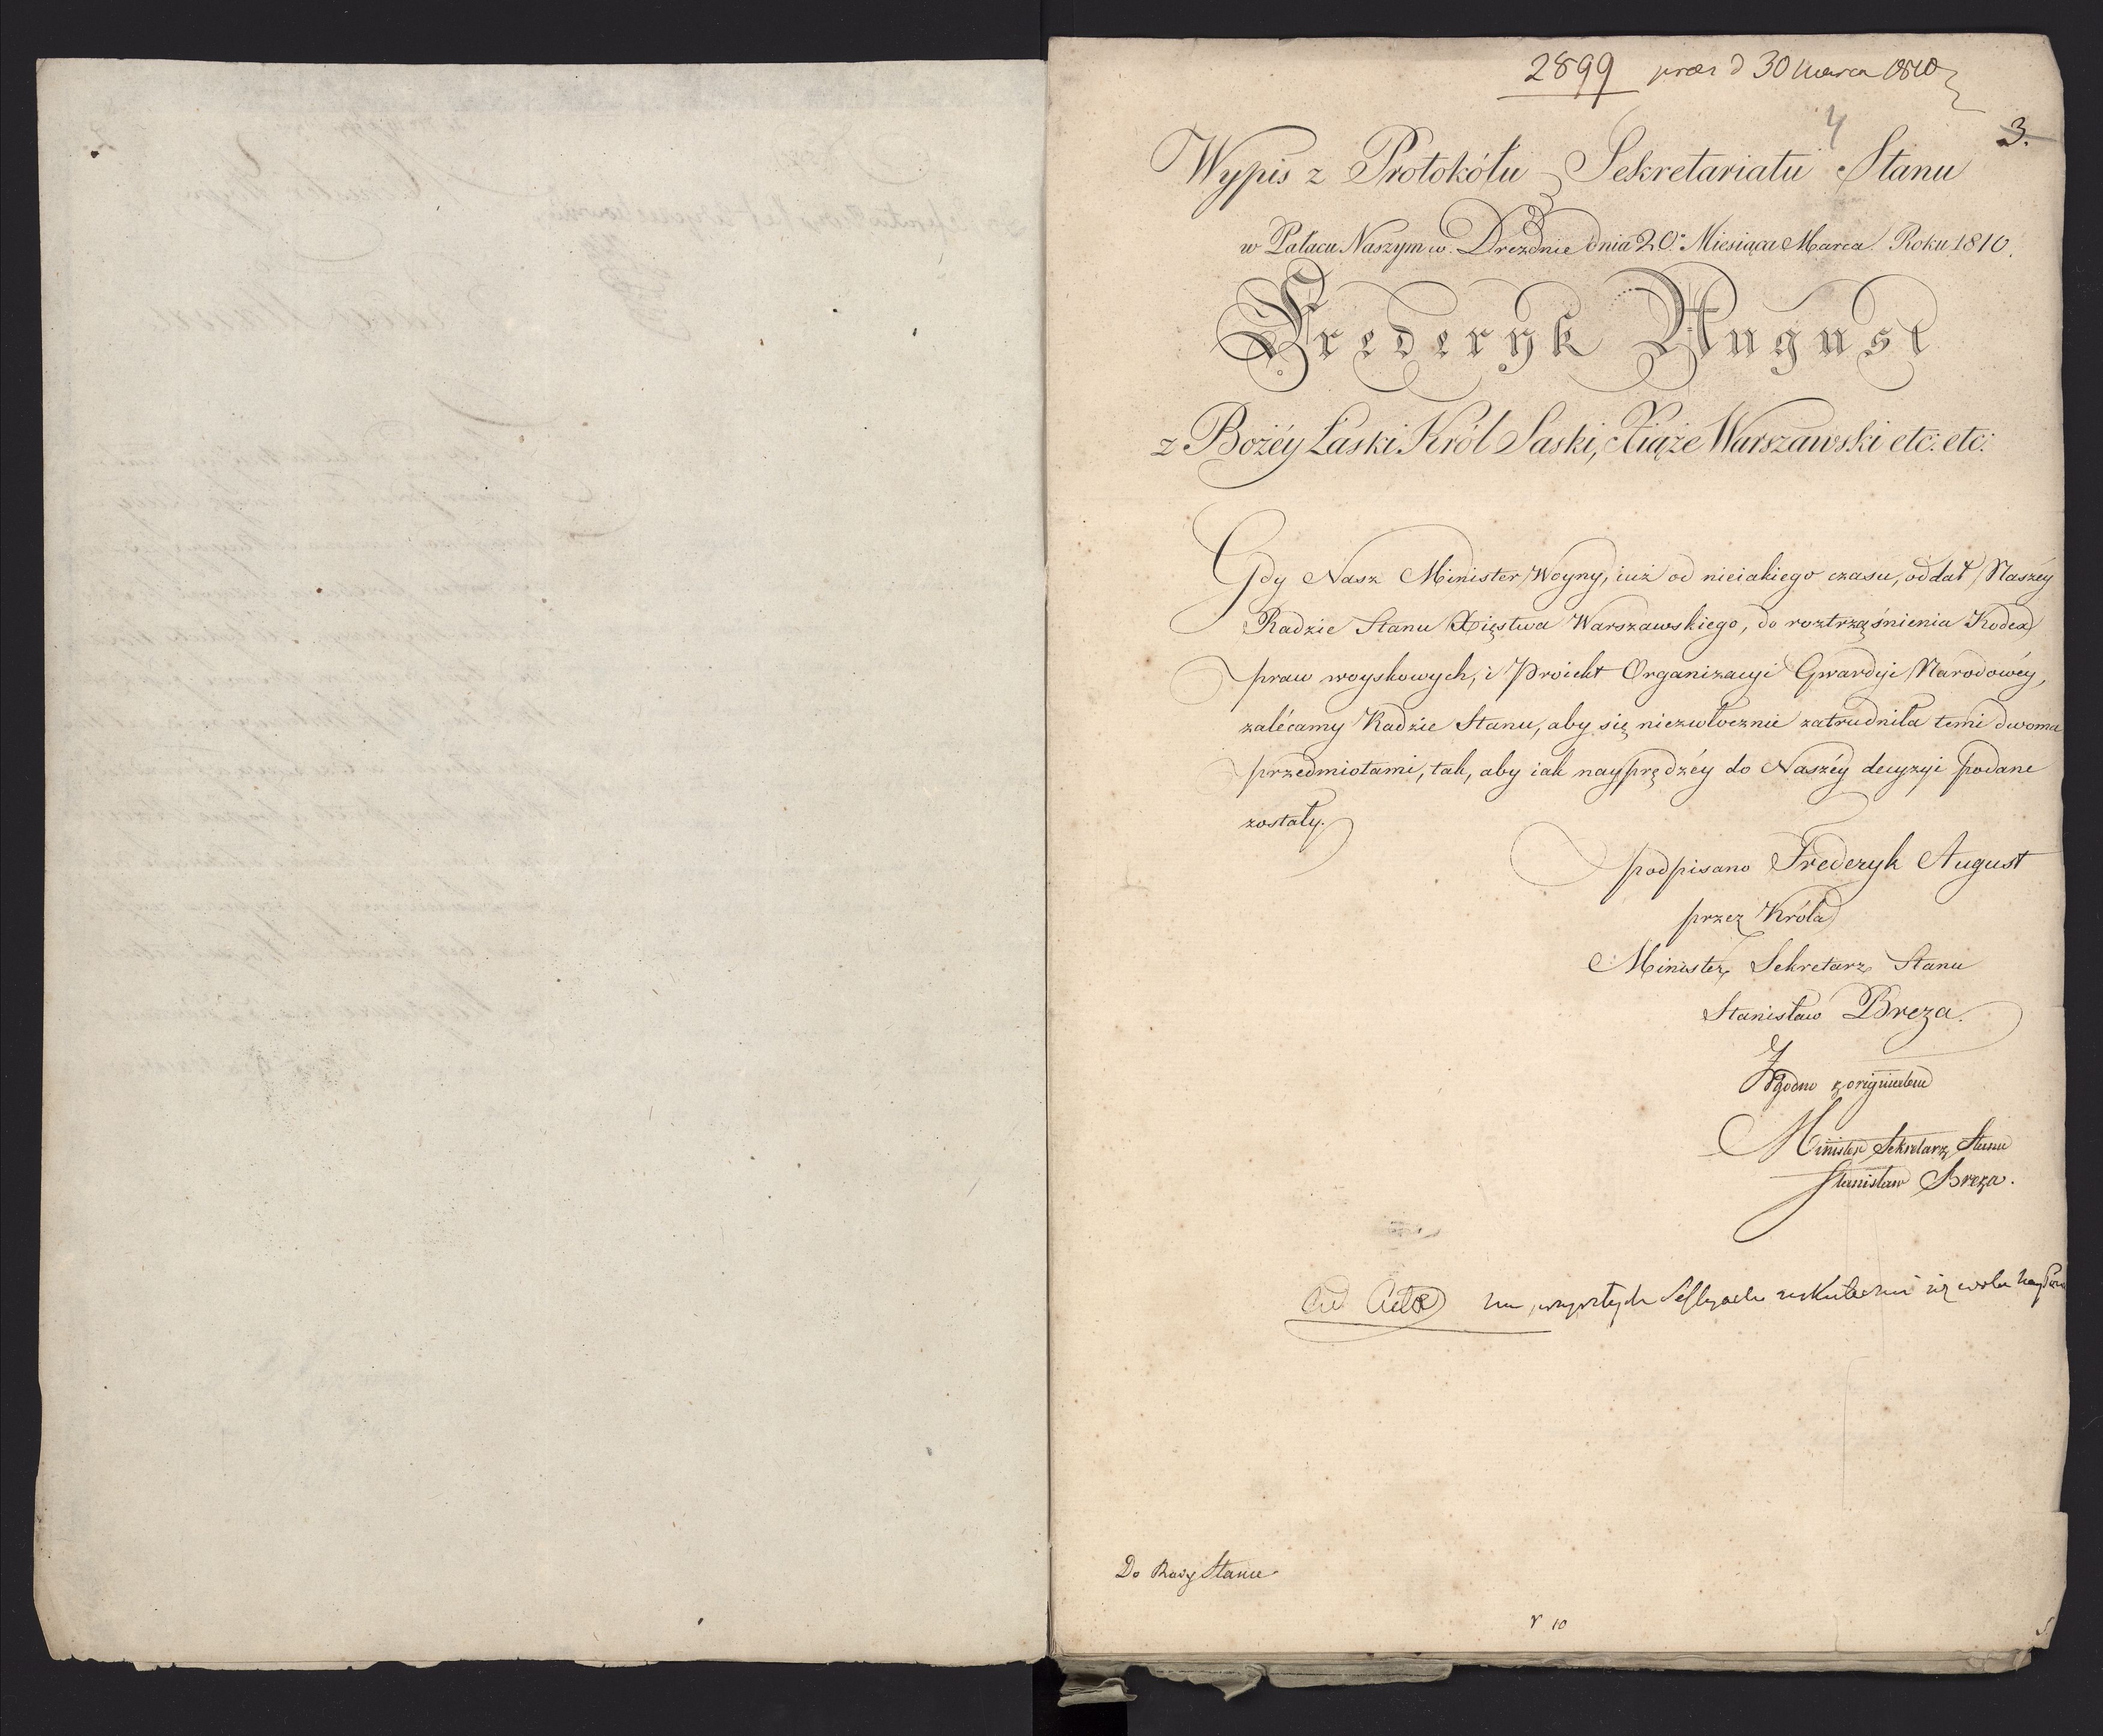 2899 praes d 30 Marca 1810
4
3.
Wypis z Protokółu Sekretariatu Stanu
w Pałacu Naszym w Dreznie dnia 20. Miesiąca Marca Roku 1810.
Frederyk August
z Bożéy Łaski Król Saski, Xiąże Warszawski etc: etc:
Gdy Nasz Minister Woyny, iuż od nieiakiego czasu, oddał Naszéy
Radzie Stanu Xięstwa Warszawskiego, do roztrząśnienia Kodex
praw woyskowych, i Proiekt Organizacyi Gwardyi Narodowéy,
zalécamy Radzie Stanu, aby się niezwłocznie zatrudniła temi dwoma
przedmiotami, tak, aby iak nayprędzéy do Naszéy decyzyi podane
zostały.
podpisano Frederyk August
przez Króla
Minister Sekretarz Stanu
Stanisław Breza.
Zgodno z originałem
Minister Sekretarz Stanu
Stanisław Breza.
Ad Acta na przyszłych Sessyach uskuteczni się wola
Do Rady Stanu
r 10